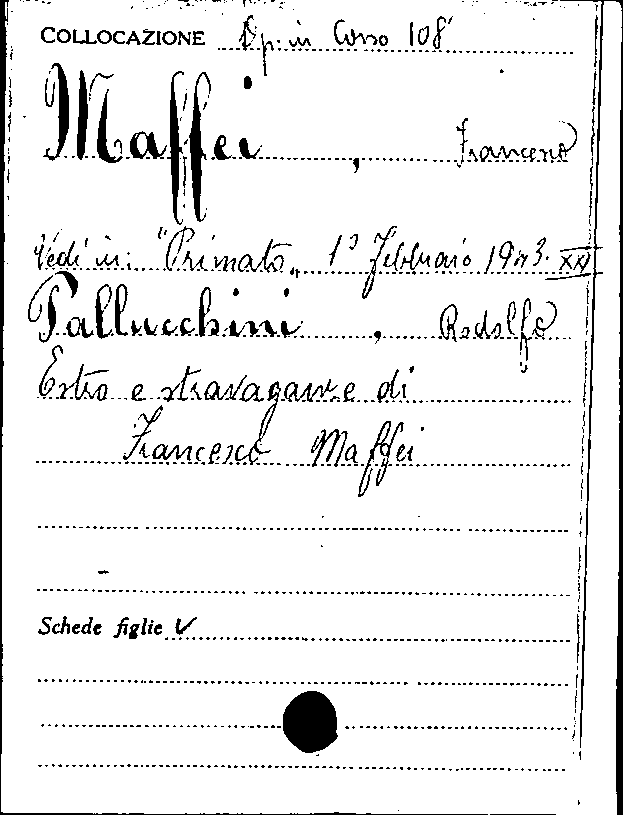 COLLOCAZIONE Op. in Corso 108
Maffei, Francesco
Vedi in: "Primato„ 1° Febbraio 1943. XXI
Pallucchini, Rodolfo
Estro e stravaganze di
Francesco Maffei
Schede figlie V